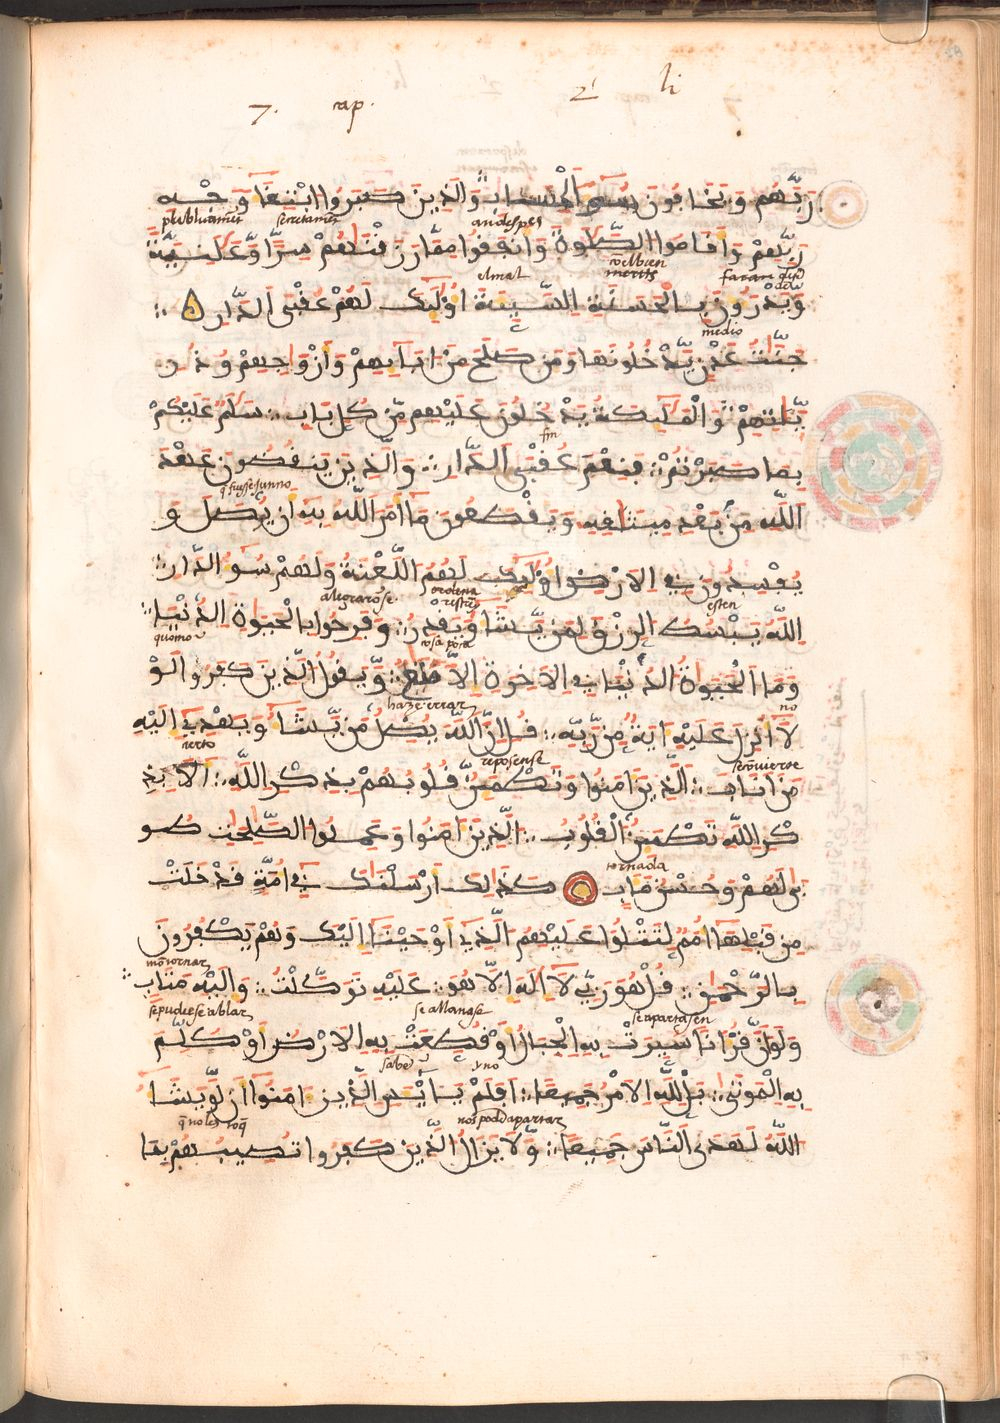 7. cap. 2 li
ربهم ويخافون سوء الحساب والذين صبروا ابتغا وجه
publicamet secretamet an despes
ربهم واقاموا الصلوة وانفقوا مما رزقنهم سرا وعلنية
el mal merits
ويدرون بالحسنة السيية اوليك لهم عقبى الدار
medio
جنت عدن يدخلونها ومن صلح من ابايهم وازوجهم وذر
يتهم والمليكة يدخلون عليهم من كل باب سلم عليكم
fin
بما صبرتم فنعم عقبى الدار والذين ينقضون عهد
q fuesse junno
الله من بعد ميثقه ويقطعون ما امر الله به ان يوصل و
يفسدون في الارض اوليك لهم اللعنة ولهم سو الدار
alegraronse ordena esten
الله يبسط الرزق لمن يشا ويقدر وفرحوا بالحيوة الدنيا
quomo cosa poca
وما الحيوة الدنيا في الاخرة الا متع ويقول الذين كفروا لو
haze errar no
لا انزل عليه اية من ربه قل ان الله يضل من يشا ويهدي اليه
reposense
من اناب الذين امنوا وتطمين قلوبهم بذكر الله الا بذ
كر الله تطمين القلوب الذين امنوا وعملوا الصلحت طو
tornada
بى لهم وحسن ماب كذلك ارسلنك في امة قد خلت
من قبلها امم لتتلوا عليهم الذي اوحينا اليك وهم يكفرون
mo tornar
بالرحمن قل هو ربي لا اله الا هو عليه توكلت واليه متاب
se pudiese ablar se allanase se apartasen
ولو ان قرانا سيرت به الجبال او قطعت به الارض او كلم
sabe y no
به الموتى بل لله الامر جميعا افلم يايس الذين امنوا ان لو يشا
nos podd apartar
الله لهدى الناس جميعا ولا يزال الذين كفروا تصيبهم بما